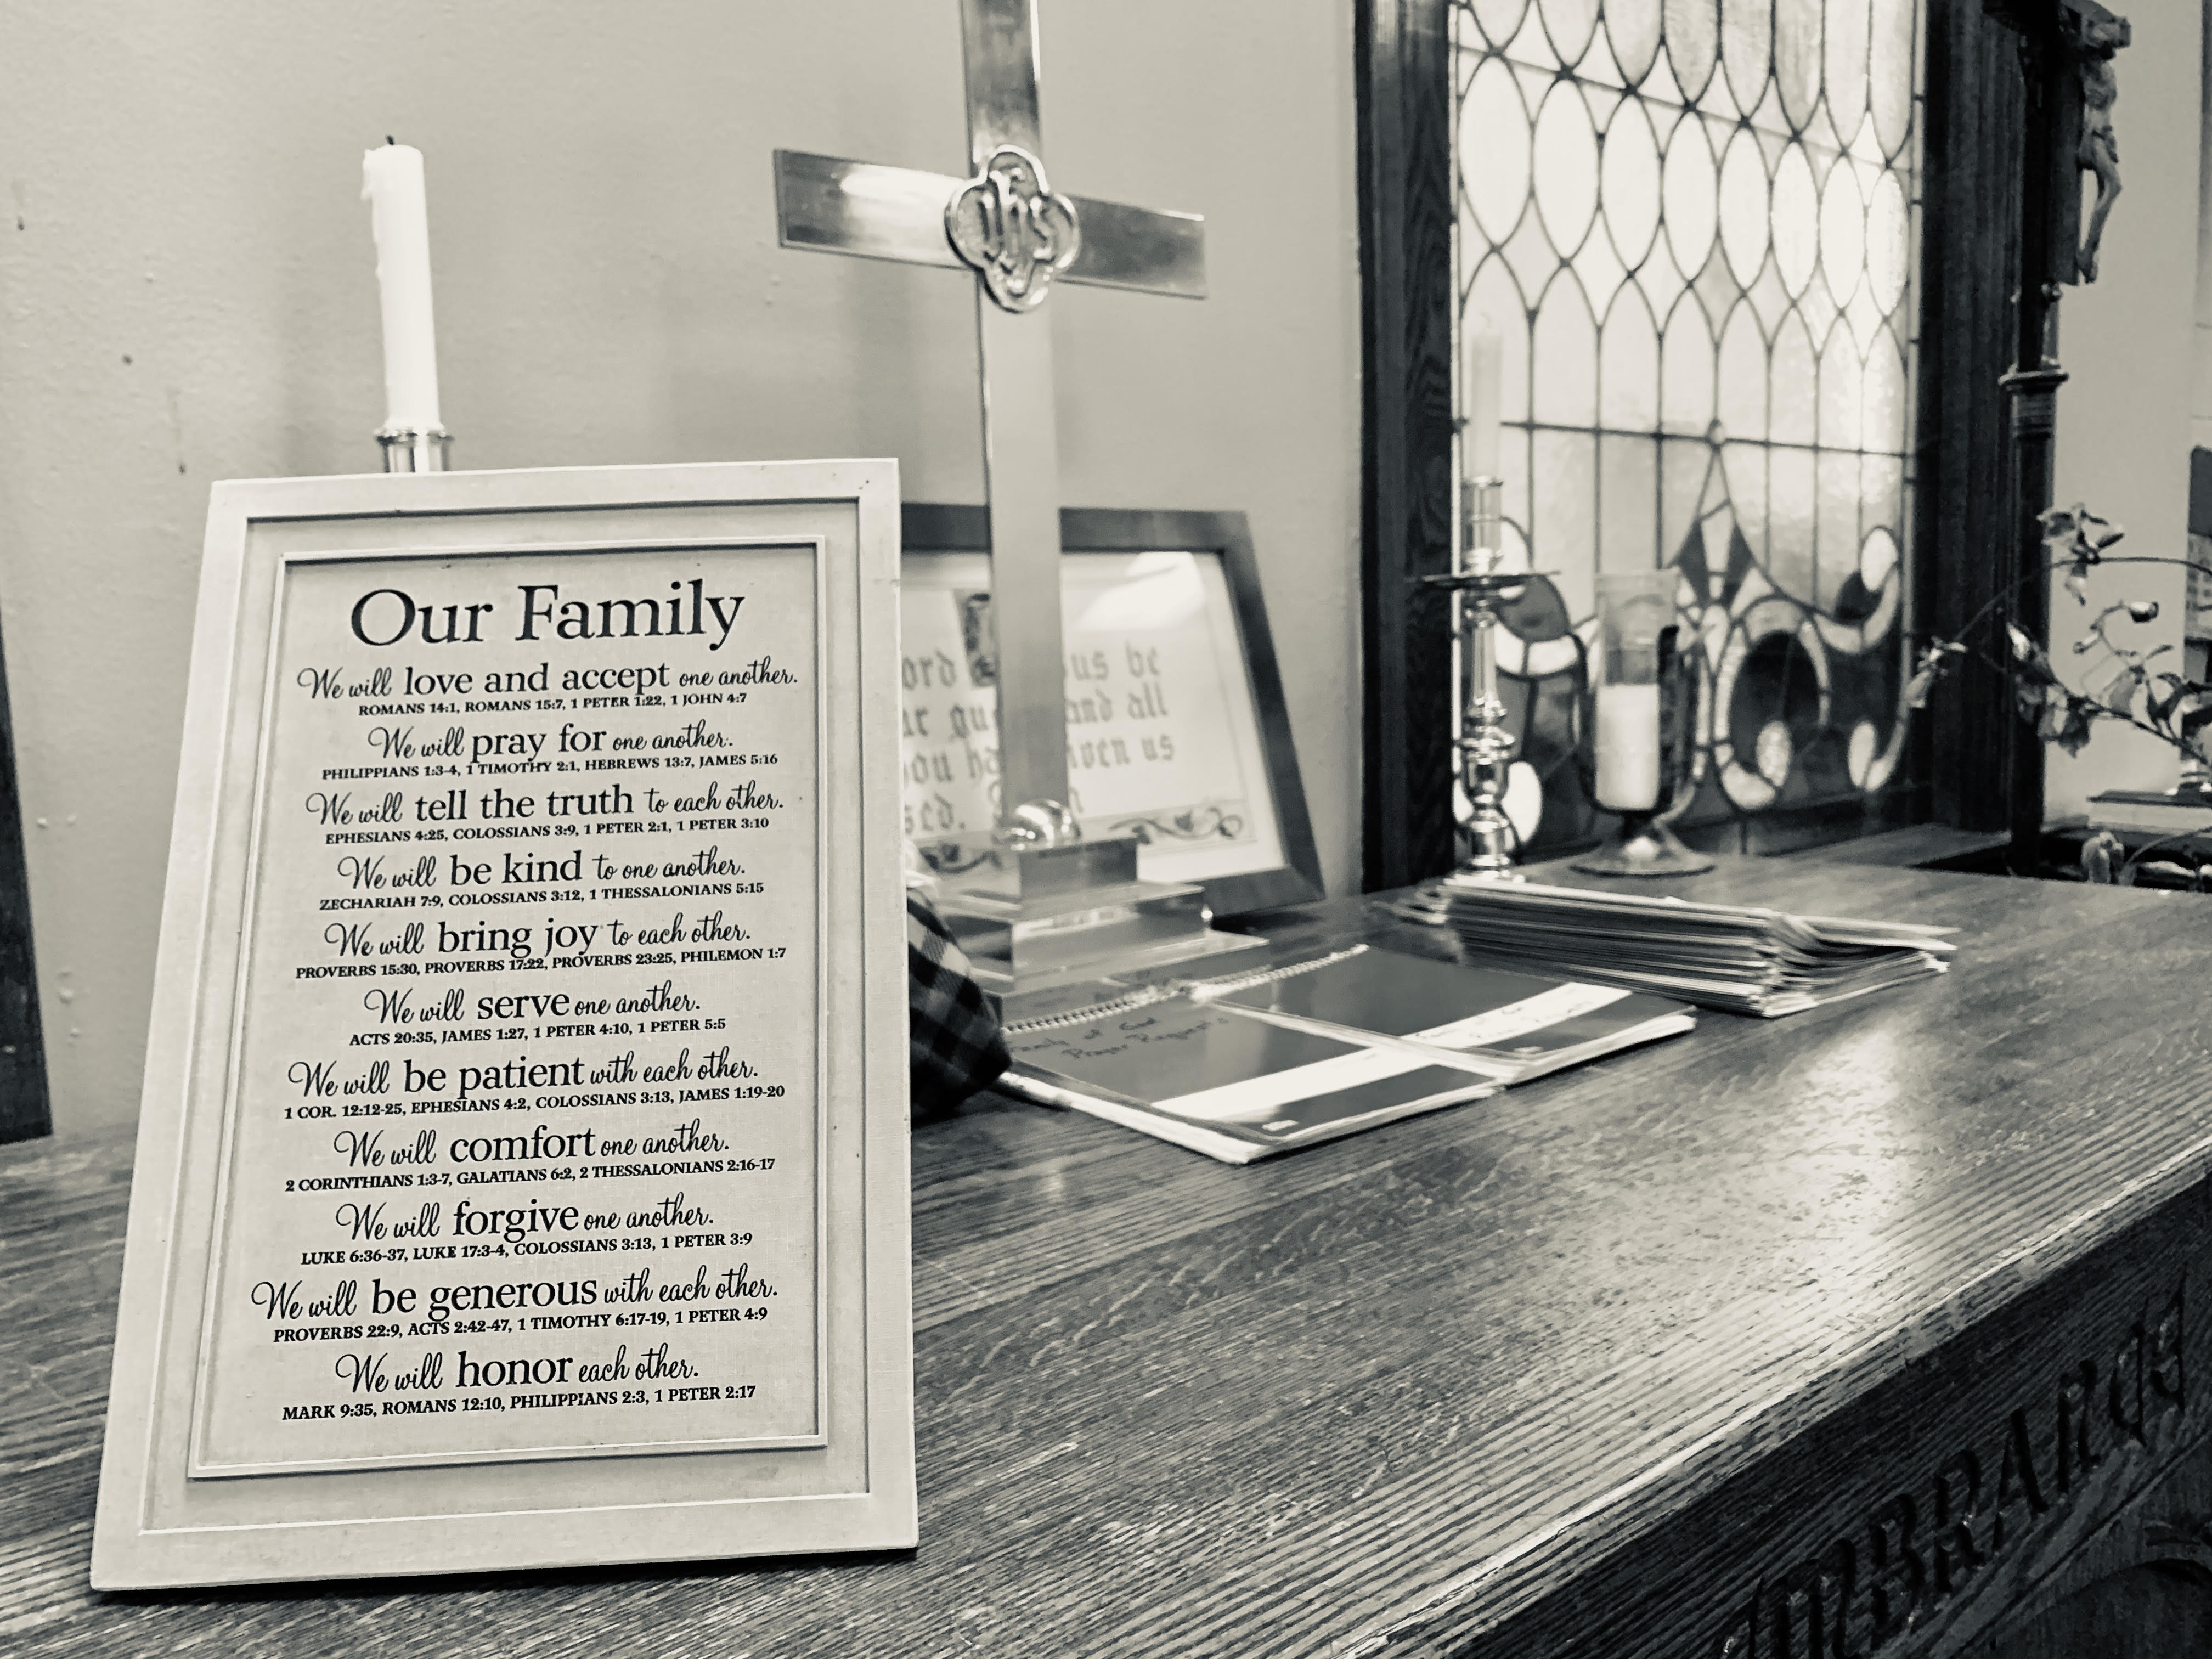 Our Family
We will love and accept one another.
ROMANS 14:1, ROMANS 15:7, 1 PETER 1:22, 1 JOHN 4:7
We will pray for one another.
PHILIPPIANS 1:3-4, 1 TIMOTHY 2:1, HEBREWS 13:7, JAMES 5:16
We will tell the truth to each other.
EPHESIANS 4:25, COLOSSIANS 3:9, 1 PETER 2:1, 1 PETER 3:10
We will be kind to one another.
ZECHARIAH 7:9, COLOSSIANS 3:12, 1 THESSALONIANS 5:15
We will bring joy to each other.
PROVERBS 15:30, PROVERBS 17:22, PROVERBS 23:25, PHILEMON 1:7
We will serve one another.
ACTS 20:35, JAMES 1:27, 1 PETER 4:10, 1 PETER 5:5
We will be patient with each other.
1 COR. 12:12-25, EPHESIANS 4:2, COLOSSIANS 3:13, JAMES 1:19-20
We will comfort one another.
2 CORINTHIANS 1:3-7, GALATIANS 6:2, 2 THESSALONIANS 2:16-17
We will forgive one another.
LUKE 6:36-37, LUKE 17:3-4, COLOSSIANS 3:13, 1 PETER 3:9
We will be generous with each other.
PROVERBS 22:9, ACTS 2:42-47, 1 TIMOTHY 6:17-19, 1 PETER 4:9
We will honor each other.
MARK 9:35, ROMANS 12:10, PHILIPPIANS 2:3, 1 PETER 2:17
ihs
be
and all
us
Family of God
Prayer Requests